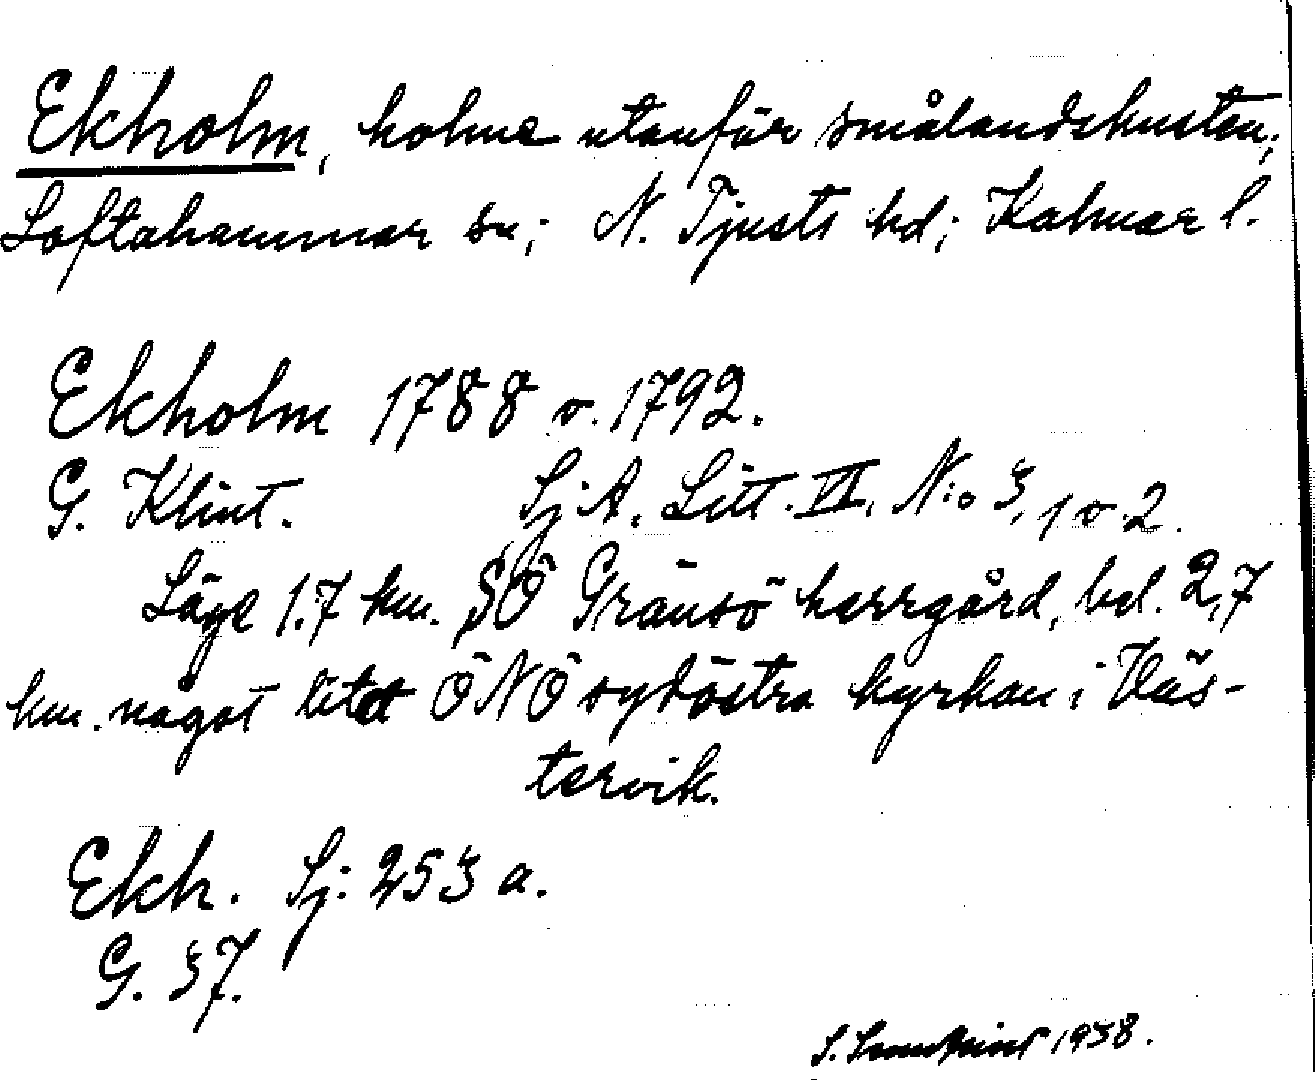 Ekholm, holme utanför smålandskusten;
Loftahammar sn; N. Tjusts hd; Kalmar l.
Ekholm 1788 o. 1792.
G. Klint. Sj A. Litt. VI. N:o 3, 1 o. 2.
Läge 1.7 km. SÖ Gränsö herrgård, bel. 2,7
km. något litet ÖNÖ sydöstra kyrkan i Väs-
tervik.
Ekh. Sj: 253 a.
G. 37.
S. 1938.